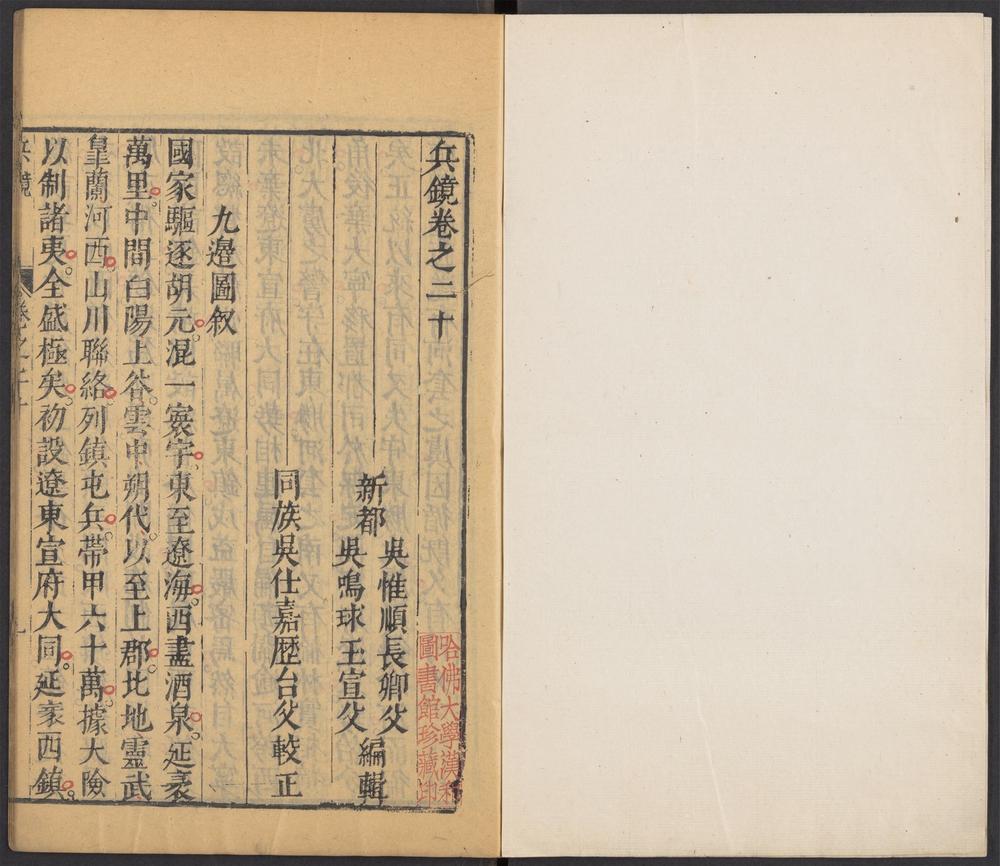 兵鏡卷之二十
新都
吳惟順長卿父
吳鳴球玉宣父
編輯
同族吳仕嘉歷台父較正
九邊圖叙
國家驅逐胡元。混一寰宇。東至遼海。西盡酒泉。延袤
萬里。中間白陽上谷。雲中朔代。以至上郡。北地靈武
臯蘭河西。山川聯絡。列鎮屯兵。帶甲六十萬。據大險
以制諸夷。全盛極矣。初設遼東宣府大同。延袤四鎮。
兵鏡
卷之二十
哈佛大學漢和
圖書館珍藏印